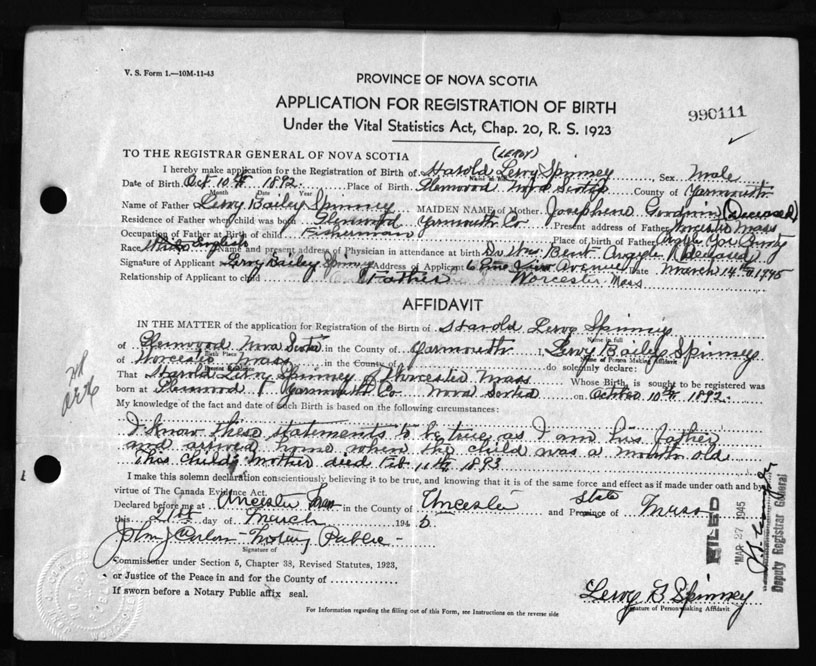 V. S. Form 1.—10M-11-43
PROVINCE OF NOVA SCOTIA
APPLICATION FOR REGISTRATION OF BIRTH
990111
Under the Vital Statistics Act, Chap. 20, R. S. 1923
(LEROY)
TO THE REGISTRAR GENERAL OF NOVA SCOTIA
I hereby make application for the Registration of Birth of Harold Leroy Spinney, Sex Male
Date of Birth Oct 10th 1892. Place of Birth Glenwood Nova Scotia County of Yarmouth
Month Day Year
Name of Father Leroy Bailey Spinney MAIDEN NAME of Mother Josephene Goodwin (Deceased)
Residence of Father when child was born Glenwood Yarmouth Co. Present address of Father Worcester Mass
Occupation of Father at Birth of child Fisherman Place of birth of Father Argyle Yar. County
Race English Name and present address of Physician in attendance at birth Dr. Wm. Bent Argyle (deceased)
Signature of Applicant Leroy Bailey Spinney Address of Applicant 6 Pine View Avenue Date March 14th 1945
Relationship of Applicant to child Father Worcester Mass
AFFIDAVIT
IN THE MATTER of the application for Registration of the Birth of Harold Leroy Spinney
Name in full
of Glenwood Nova Scotia in the County of Yarmouth I, Leroy Bailey Spinney
Birth Place Name of Person Making Affidavit
of Worcester Mass do solemnly declare:
That Harold Leroy Spinney of Worcester Mass Whose Birth is sought to be registered was
born at Glenwood Yarmouth Co. Nova Scotia on October 10th 1892.
My knowledge of the fact and date of such Birth is based on the following circumstances:
I know these statements to be true, as I am his father
and arrived home when the child was a month old
This child's mother died Feb 11th 1893
I make this solemn declaration conscientiously believing it to be true, and knowing that it is of the same force and effect as if made under oath and by
virtue of The Canada Evidence Act.
Declared before me at Worcester Mass in the County of Worcester and State Province of Mass
this 21st day of March 1945.
John J. Notary Public
Signature of
Commissioner under Section 5, Chapter 38, Revised Statutes, 1923,
or Justice of the Peace in and for the County of
If sworn before a Notary Public affix seal.
Leroy B Spinney
Signature of Person making Affidavit
For Information regarding the filling out of this Form, see Instructions on the reverse side
FILED
MAR 27 1945
Deputy Registrar General